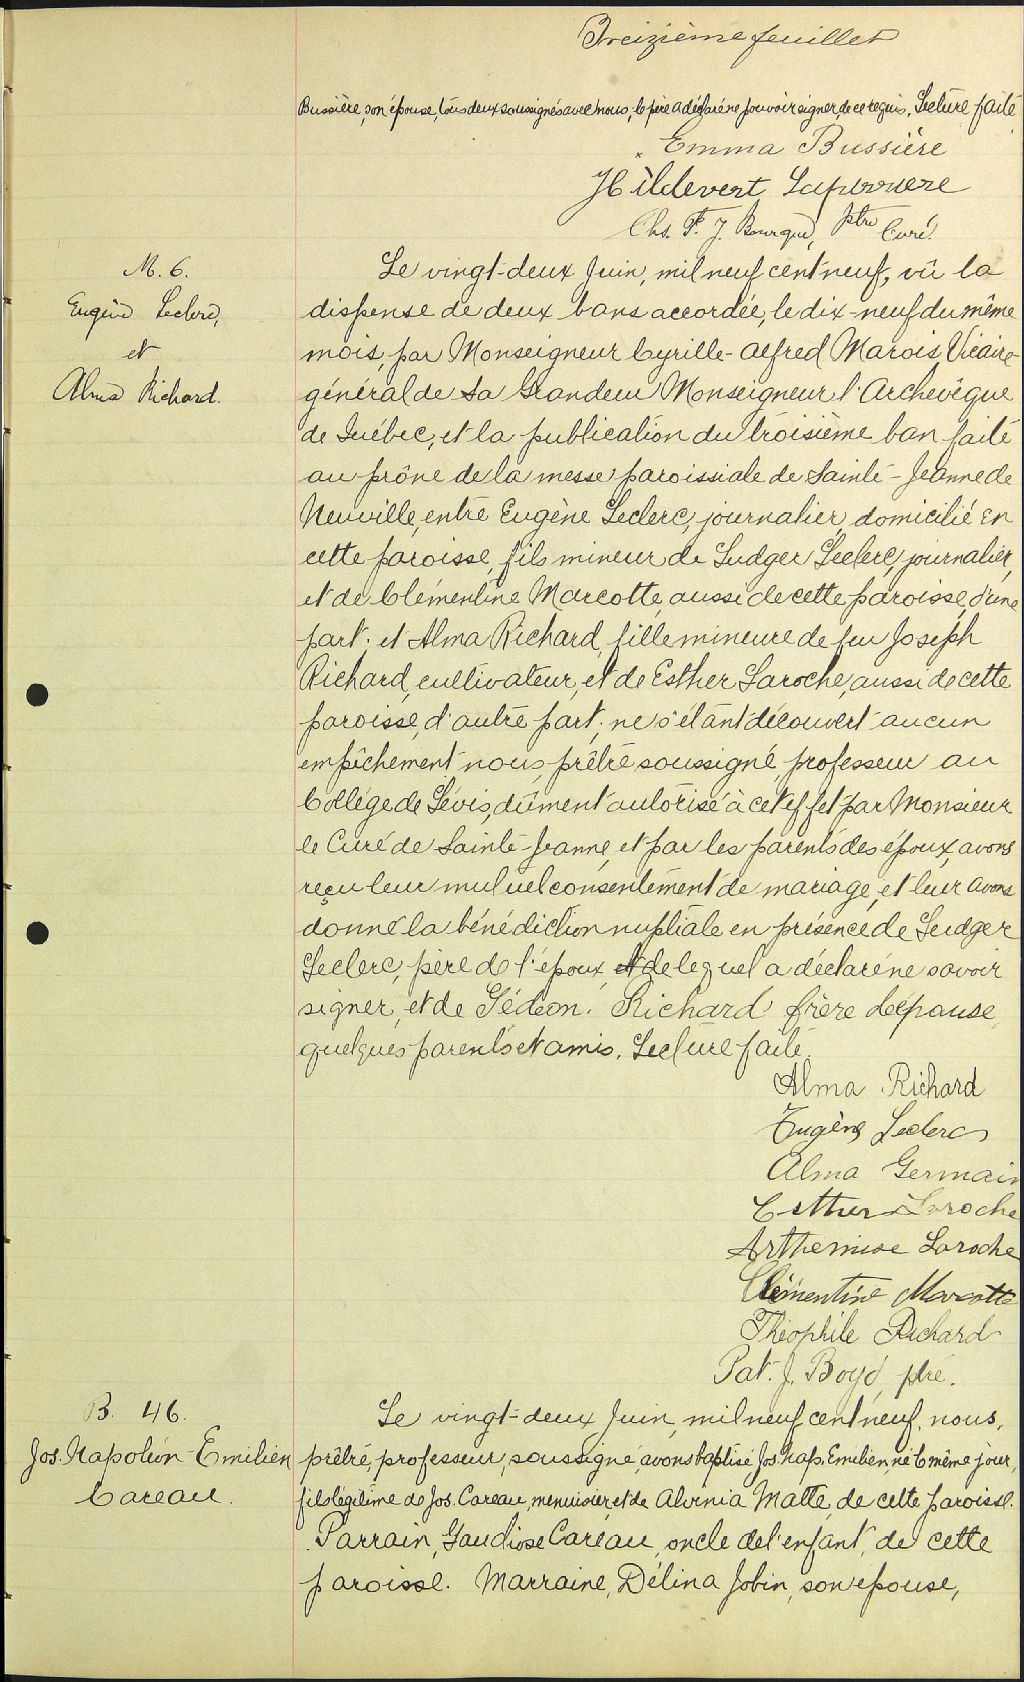 Treizième feuillet
Bussière, son épouse, tous deux soussignés avec nous, le père a déclaré ne pouvoir signer, de ce requis. Lecture faite
Emma Bussière
Hildevert Laperriere
Chs. F. J. Bourque, ptre Curé.
M. 6.
Eugène Leclerc,
et
Alma Richard.
Le vingt-deux Juin, mil neuf cent neuf, vû la
dispense de deux bans accordée, le dix-neuf du même
mois, par Monseigneur Cyrille-Alfred Marois, Vicaire-
général de Sa Grandeur Monseigneur l'Archevêque
de Québec, et la publication du troisième ban faite
au prône de la messe paroissiale de Sainte-Jeanne de
Neuville, entre Eugène Leclerc, journalier, domicilié en
cette paroisse, fils mineur de Ludger Leclerc, journalier,
et de Clémentine Marcotte, aussi de cette paroisse, d'une
part; et Alma Richard, fille mineure de feu Joseph
Richard, cultivateur, et de Esther Laroche, aussi de cette
paroisse, d'autre part; ne s'étant découvert aucun
empêchement nous, prêtre soussigné, professeur au
Collège de Lévis, dûment autorisé à cet effet par Monsieur
le Curé de Sainte-Jeanne, et par les parents des époux, avons
reçu leur mutuel consentement de mariage, et leur avons
donné la bénédiction nuptiale en présence de Ludger
Leclerc, père de l'époux, lequel a déclaré ne savoir
signer, et de Gédéon. Richard frère de épouse,
quelques parents et amis. Lecture faite.
Alma Richard
Eugène Leclerc
Alma Germain
Esther Laroche
Arthemise Laroche
Clémentine Marcotte
Théophile Richard
Pat. J. Boyd, ptre.
B. 46.
Jos. Napoléon-Emilien
Careau.
Le vingt-deux Juin, mil neuf cent neuf, nous,
prêtre, professeur, soussigné, avons baptisé Jos. Nap. Emilien, né le même jour,
fils légitime de Jos. Careau, menuisier, et de Alvinia Matte, de cette paroisse.
Parrain, Gaudiose Careau, oncle de l'enfant, de cette
paroisse. Marraine, Délina Jobin, son épouse,